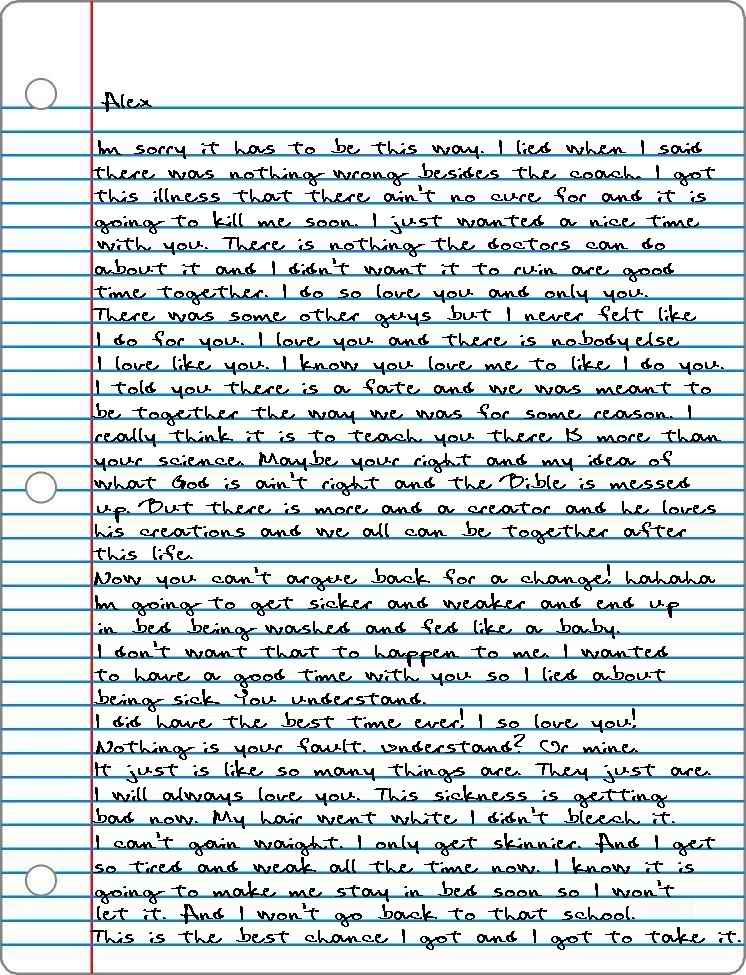 Alex
Im sorry it has to be this way. I lied when I said
there was nothing wrong besides the coach. I got
this illness that there ain't no cure for and it is
going to kill me soon. I just wanted a nice time
with you. There is nothing the doctors can do
about it and I didn't want it to ruin are good
time together. I do so love you and only you.
There was some other guys but I never felt like
I do for you. I love you and there is nobody else
I love like you. I know you love me to like I do you.
I told you there is a fate and we was meant to
be together the way we was for some reason. I
really think it is to teach you there IS more than
your science. Maybe your right and my idea of
what God is ain't right and the Bible is messed
up. But there is more and a creator and he loves
his creations and we all can be together after
this life.
Now you can't argue back for a change! hahaha
Im going to get sicker and weaker and end up
in bed being washed and fed like a baby.
I don't want that to happen to me. I wanted
to have a good time with you so I lied about
being sick. You understand.
I did have the best time ever! I so love you!
Nothing is your fault. Understand? Or mine.
It just is like so many things are. They just are.
I will always love you. This sickness is getting
bad now. My hair went white I didn't bleech it.
I can't gain waight. I only get skinnier. And I get
so tired and weak all the time now. I know it is
going to make me stay in bed soon so I won't
let it. And I won't go back to that school.
This is the best chance I got and I got to take it.